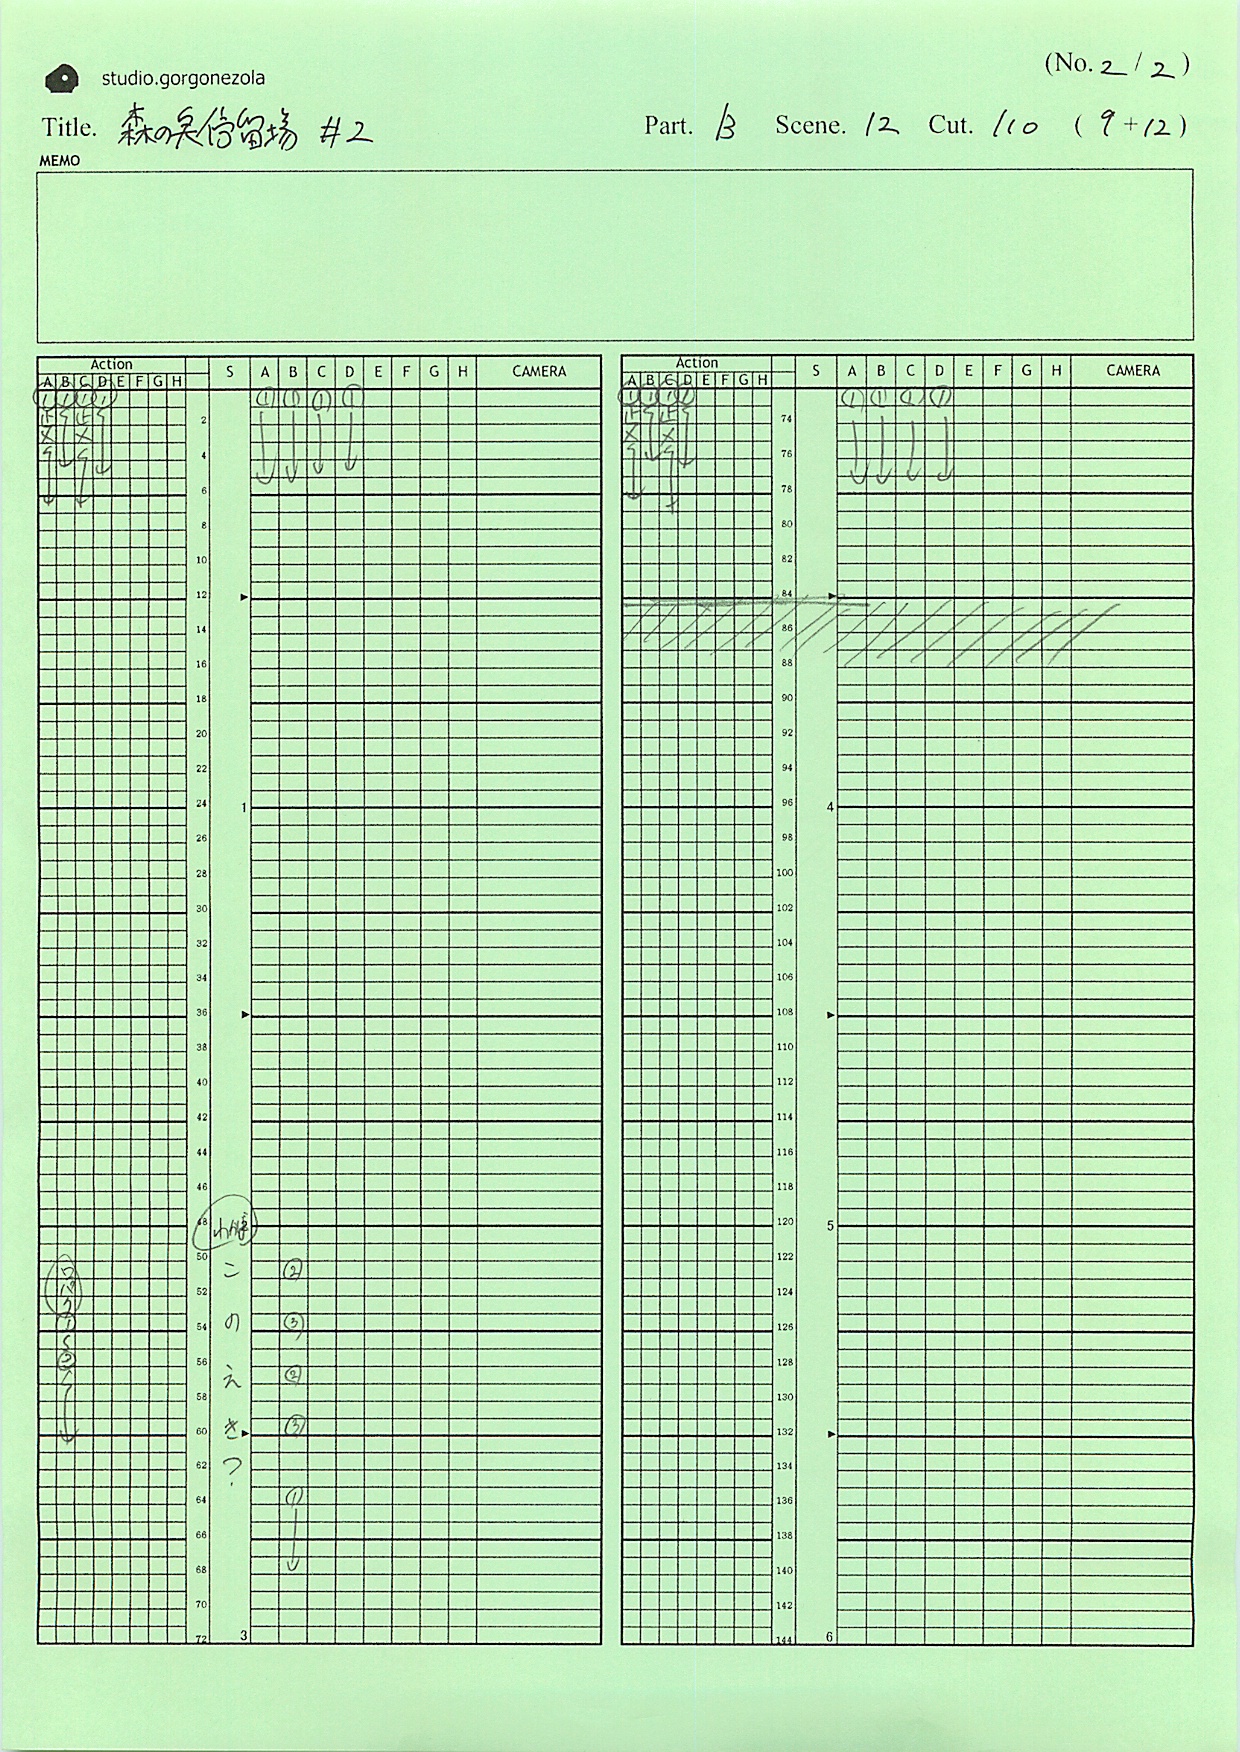 (No. 2 / 2 )
studio.gorgonezola
Title. 森の停留場 #2 Part. B Scene. 12 Cut. 110 ( 9 + 12 )
MEMO
Action
A B C D E F G H S A B C D E F G H CAMERA
① ① ① ① ① ① ① ①
止 止
2
× ×
4
6
8
10
12
14
16
18
20
22
24 1
26
28
30
32
34
36
38
40
42
44
46
48
50
こ ②
52
パ
ク
① の ③
54
③
56
え ②
58
60 き ③
62 ?
64 ①
66
68
70
72 3
Action
A B C D E F G H S A B C D E F G H CAMERA
① ① ① ① ① ① ① ①
止 止
74
× ×
76
78
80
82
84
86
88
90
92
94
96 4
98
100
102
104
106
108
110
112
114
116
118
120 5
122
124
126
128
130
132
134
136
138
140
142
144 6